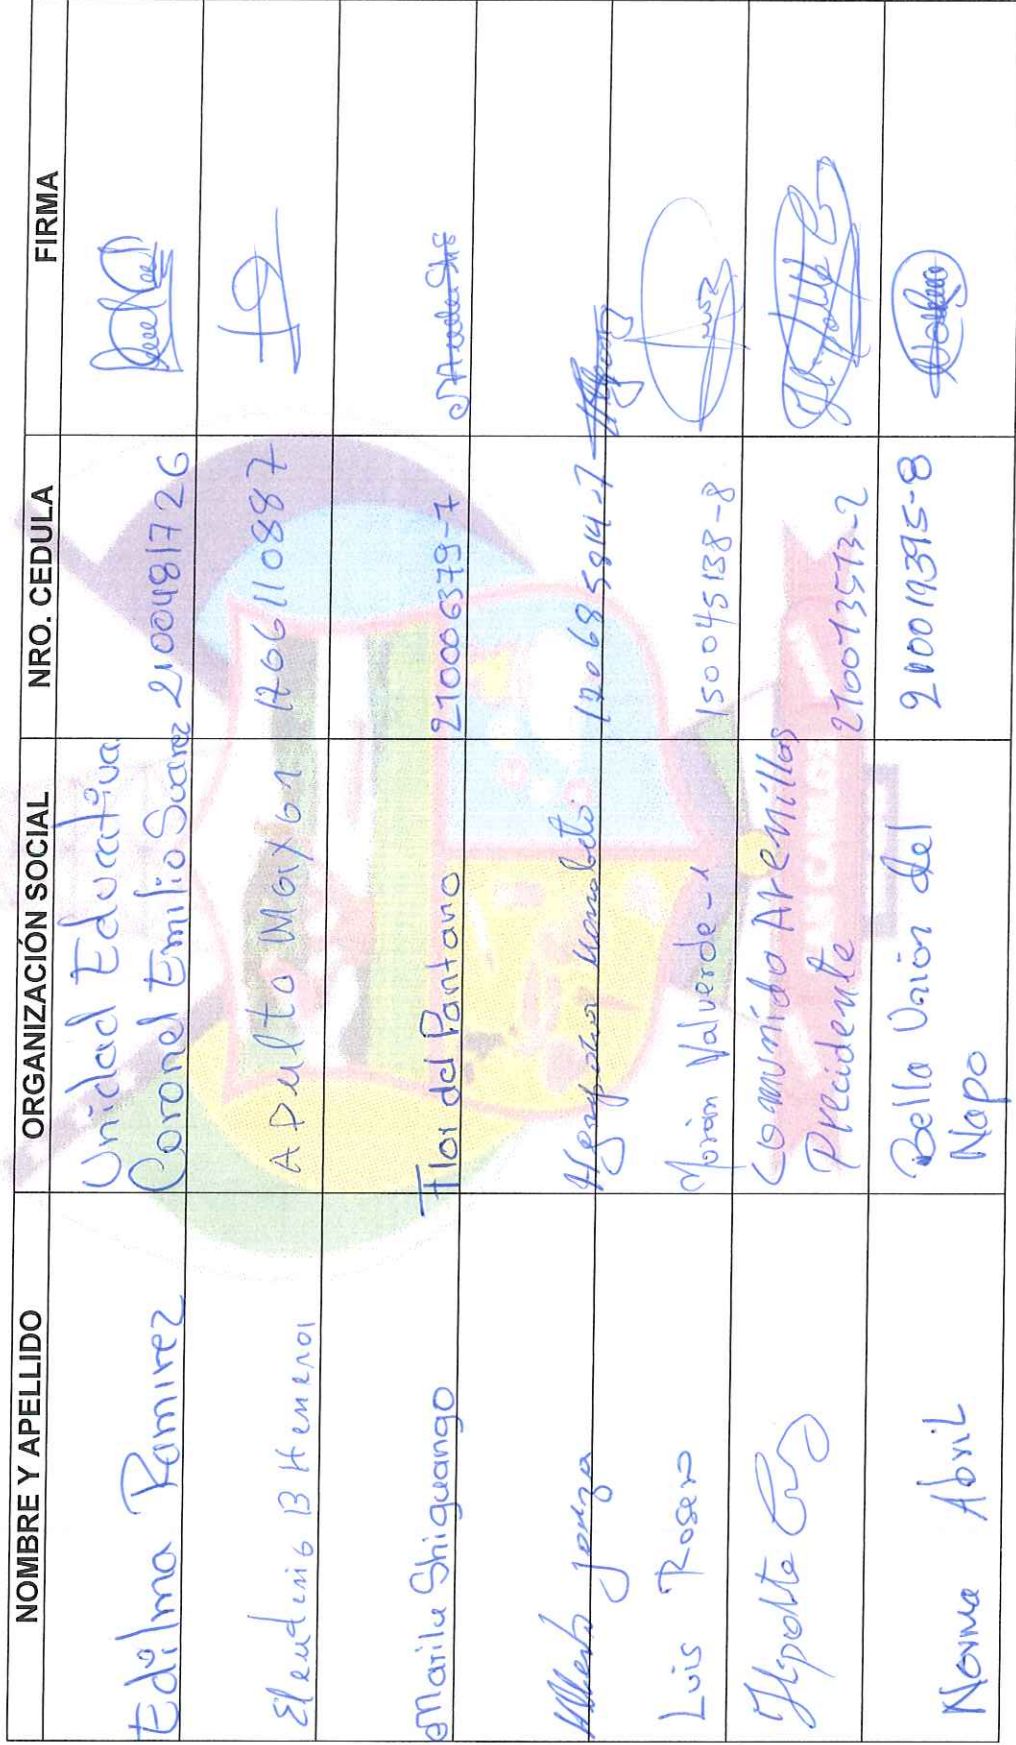 NOMBRE Y APELLIDO ORGANIZACIÓN SOCIAL NRO. CEDULA FIRMA
Edilma Ramirez Unidad Educativa
Coronel Emilio Suarez 2100481726
B Herrera 1766110887
Marilu Shiguango Flor del Pantano 210006379-7
Alberto 170685814-7
Luis Rosero Morán Valverde-1 150045138-8
Hipolito Comunida Arenillas
Precidente 210013513-2
Norma Abril Bella Unión del
Napo 210019395-8
SAN CARLOS